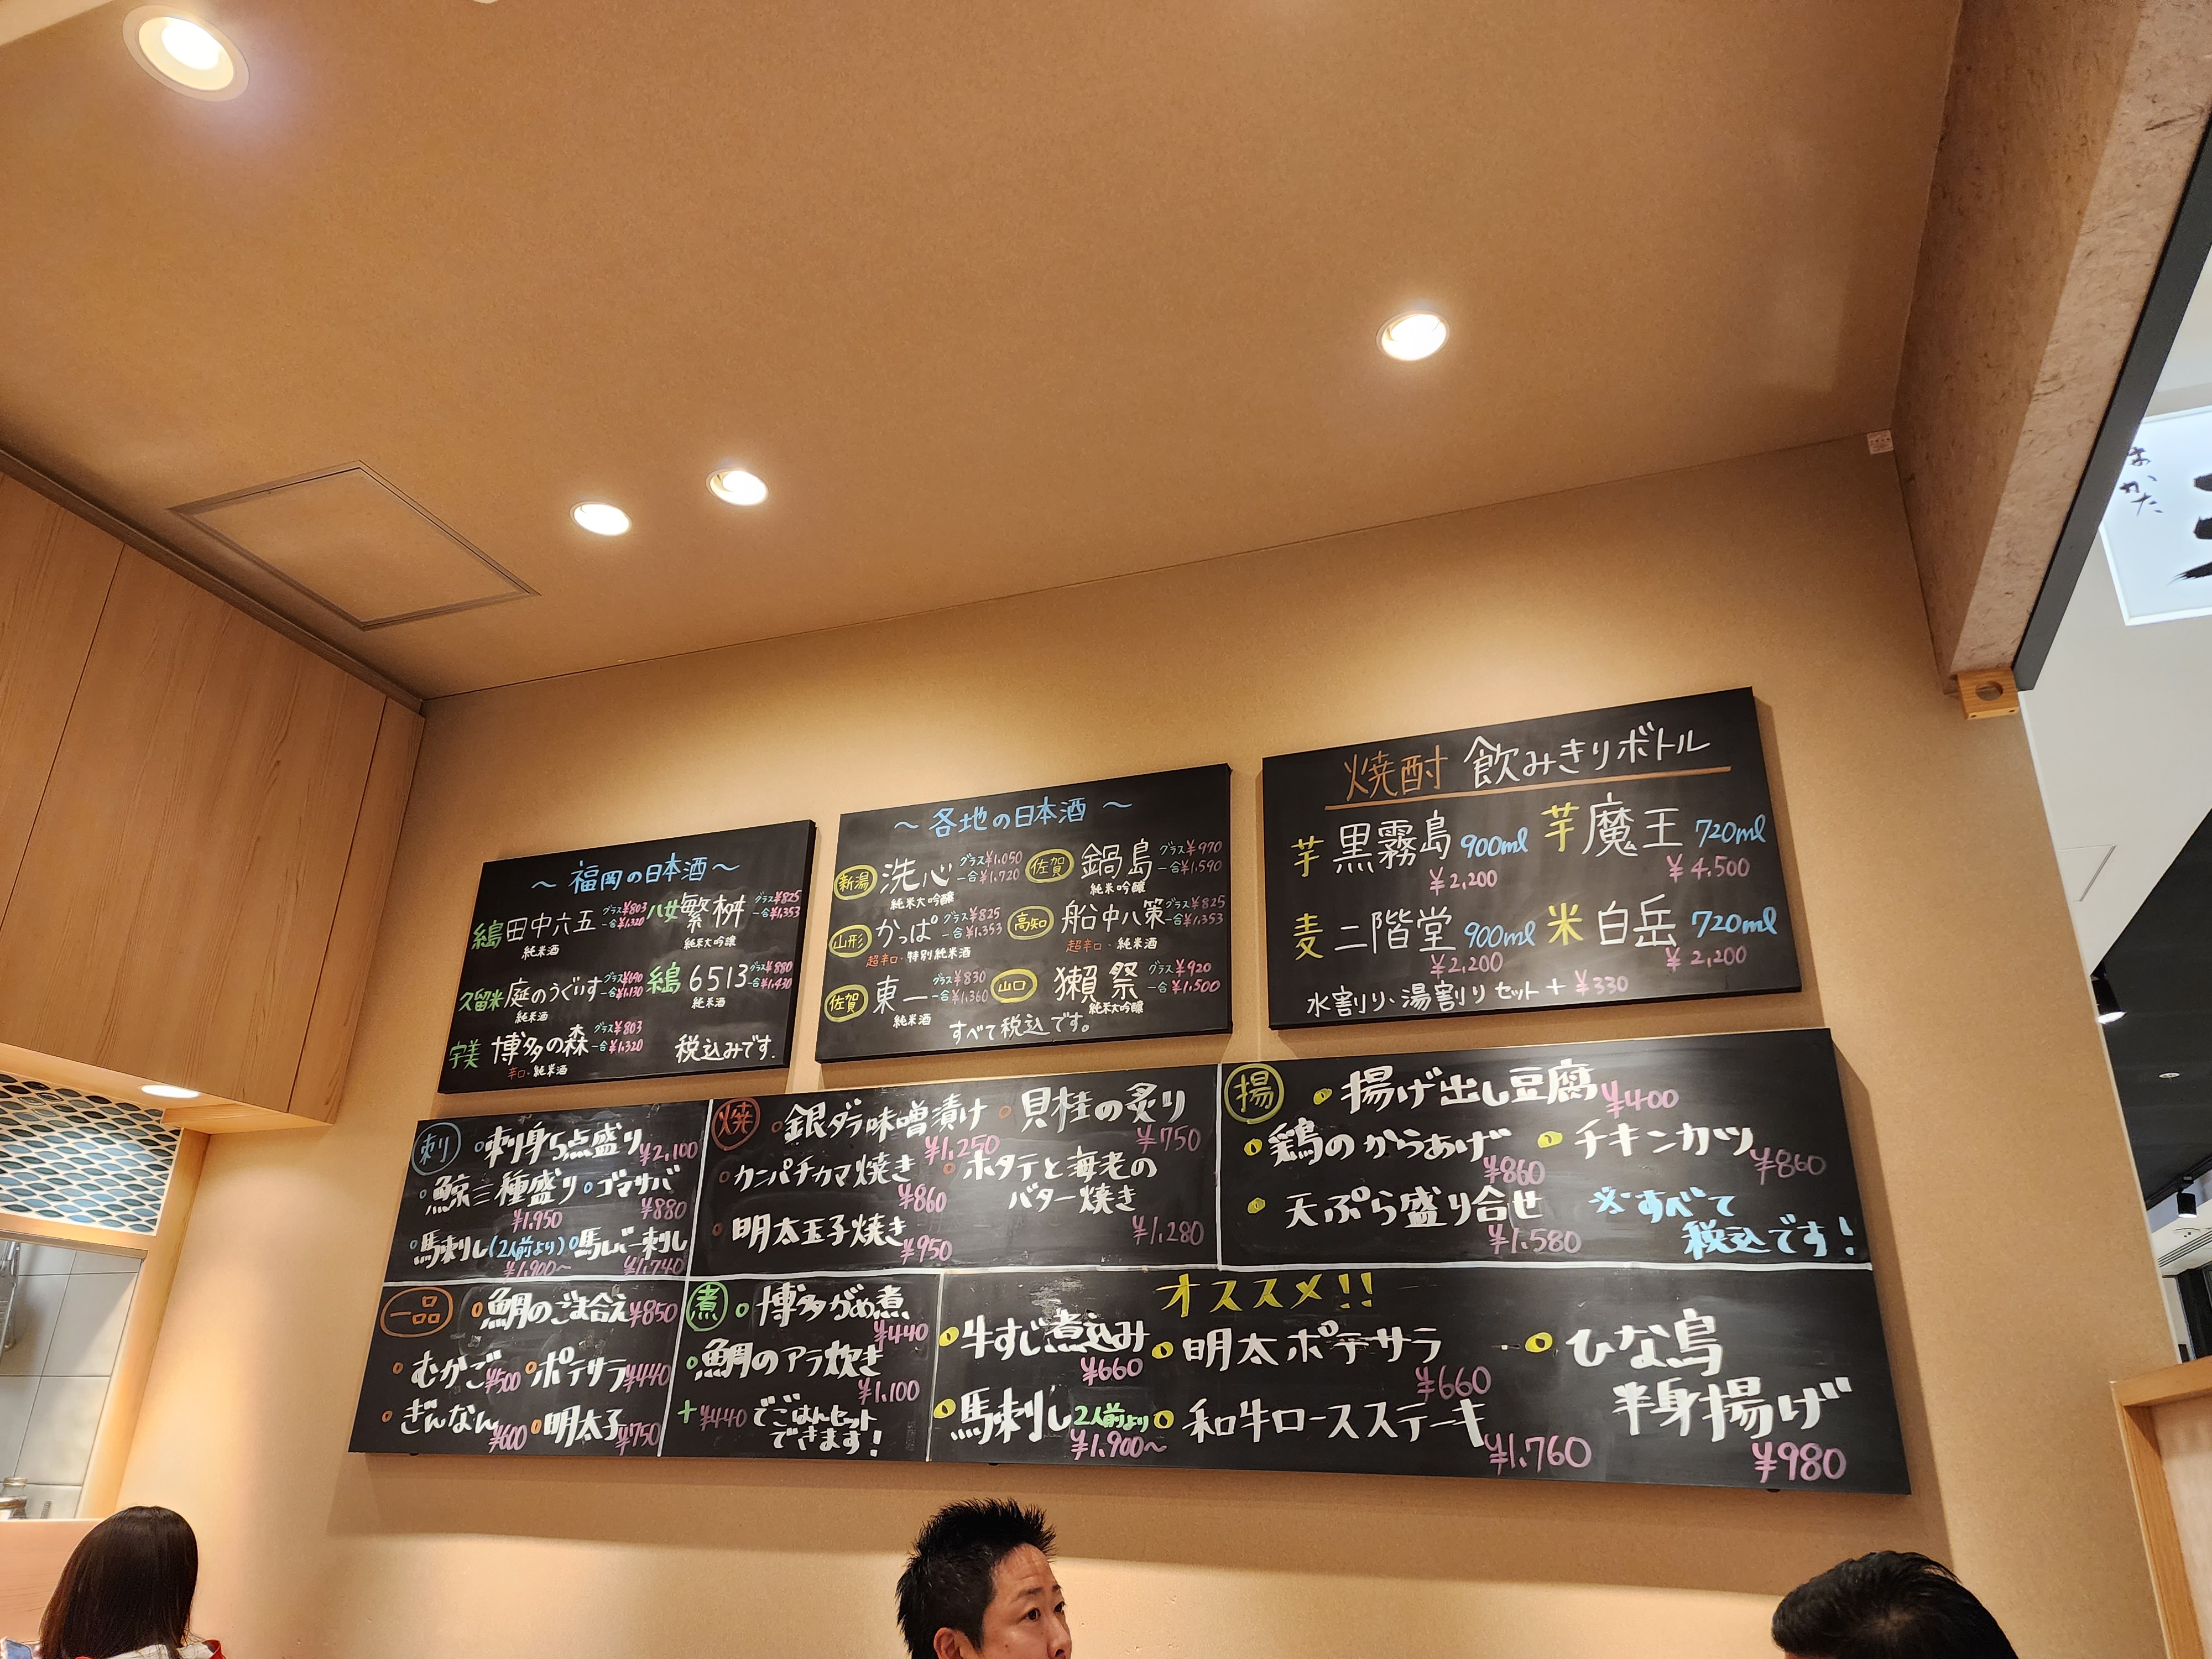 ～福岡の日本酒～
糸島 田中六五 グラス¥803 一合¥1,320
純米酒
八女 繁桝 グラス¥825 一合¥1,353
純米大吟醸
久留米 庭のうぐいす グラス¥690 一合¥1,130
純米酒
糸島 6513 グラス¥880 一合¥1,430
純米酒
宇美 博多の森 グラス¥803 一合¥1,320
辛口・純米酒
税込みです.
～各地の日本酒～
新潟 洗心 グラス¥1,050 一合¥1,720
純米大吟醸
佐賀 鍋島 グラス¥970 一合¥1,590
純米吟醸
山形 かっぱ グラス¥825 一合¥1,353
超辛口・特別純米酒
高知 船中八策 グラス¥825 一合¥1,353
超辛口・純米酒
佐賀 東一 グラス¥830 一合¥1,360
純米酒
山口 獺祭 グラス¥920 一合¥1,500
純米大吟醸
すべて税込です。
焼酎 飲みきりボトル
芋 黒霧島 900ml
¥2,200
芋 魔王 720ml
¥4,500
麦 二階堂 900ml
¥2,200
米 白岳 720ml
¥2,200
水割り・湯割りセット+¥330
刺 刺身5点盛り ¥2,100
鯨三種盛り ¥1,950
ゴマサバ ¥880
馬刺し(2人前より) ¥1,900～
馬レバー刺し ¥1,740
焼 銀ダラ味噌漬け ¥1,250
貝柱の炙り ¥750
カンパチカマ焼き ¥860
ホタテと海老の
バター焼き ¥1,280
明太玉子焼き ¥950
揚 揚げ出し豆腐 ¥400
鶏のからあげ ¥860
チキンカツ ¥860
天ぷら盛り合せ ¥1,580
※すべて
税込です!
一品 鯛のごま合え ¥850
むかご ¥500
ポテサラ ¥440
ぎんなん ¥600
明太子 ¥750
煮 博多がめ煮 ¥440
鯛のアラ炊き ¥1,100
+¥440でごはんセット
できます!
オススメ!!
牛すじ煮込み ¥660
明太ポテサラ ¥660
馬刺し 2人前より ¥1,900～
和牛ロースステーキ ¥1,760
ひな鳥
半身揚げ ¥980
はかた